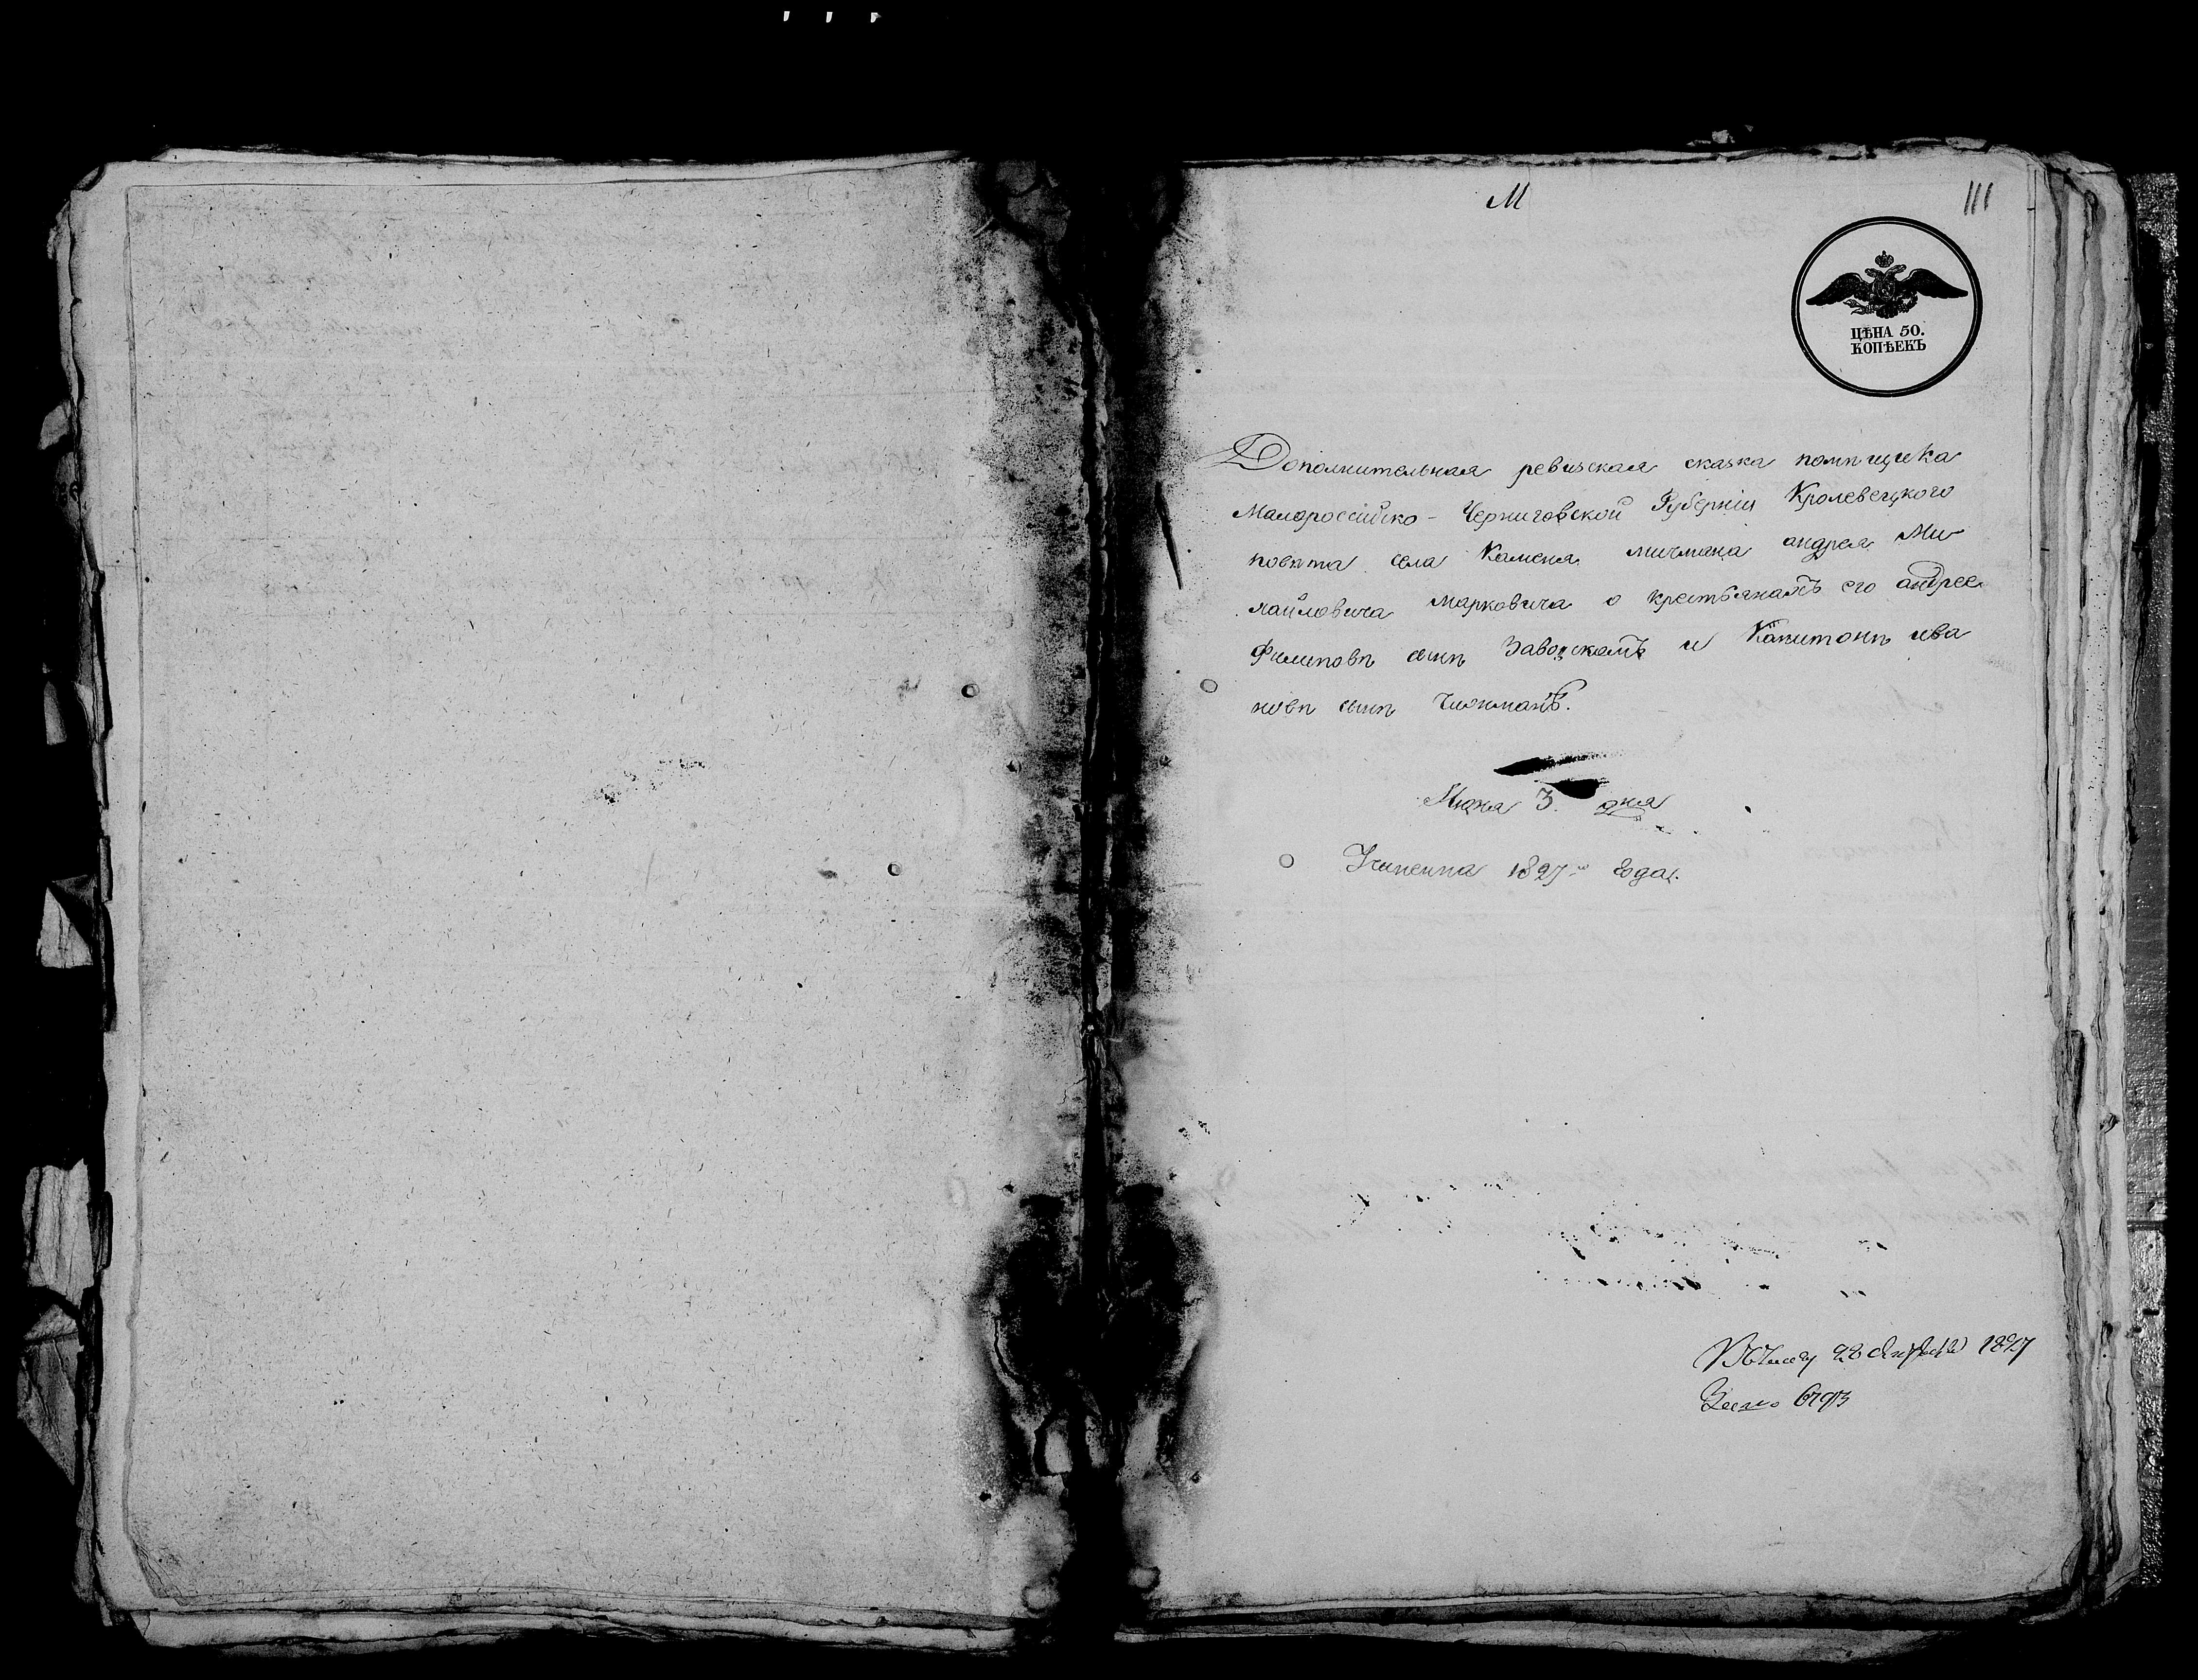 М
111
ЦѢНА 50.
КОПѢЕКЪ
Дополнительная ревизская сказка помѣщика
Малороссійско - Черниговской Губерніи Кролевецкого
повѣта села Каменя мичмана андрея Ми
хайловича Марковича о крестьянахъ его андрее
Филиповѣ сынѣ Заводскомъ и Капитонѣ ива
новѣ сынѣ
Июня 3. дня
1827го года.
1827